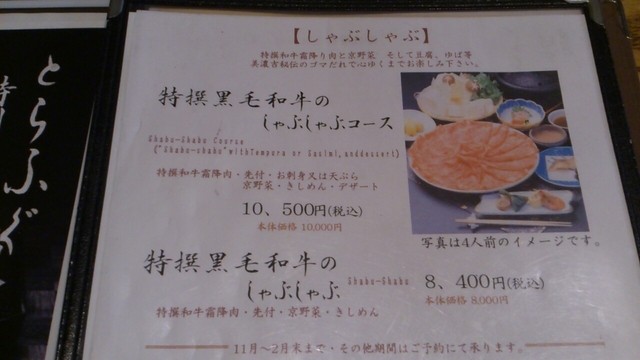 【しゃぶしゃぶ】
特撰和牛霜降り肉と京野菜 そして豆腐、ゆば等
美濃吉秘伝のゴマだれで心ゆくまでお楽しみ下さい。
特撰黒毛和牛の
しゃぶしゃぶコース
Shabu-Shabu Course
("Shabu-shabu"withTempura or Sasimi,anddessert)
特撰和牛霜降肉・先付・お刺身又は天ぷら
京野菜・きしめん・デザート
10,500円(税込)
本体価格 10,000円
写真は4人前のイメージです。
特撰黒毛和牛の
しゃぶしゃぶ
Shabu-Shabu
8,400円(税込)
本体価格 8,000円
特撰和牛霜降肉・先付・京野菜・きしめん
11月〜2月末まで・その他期間はご予約にて承ります。
とらふぐ